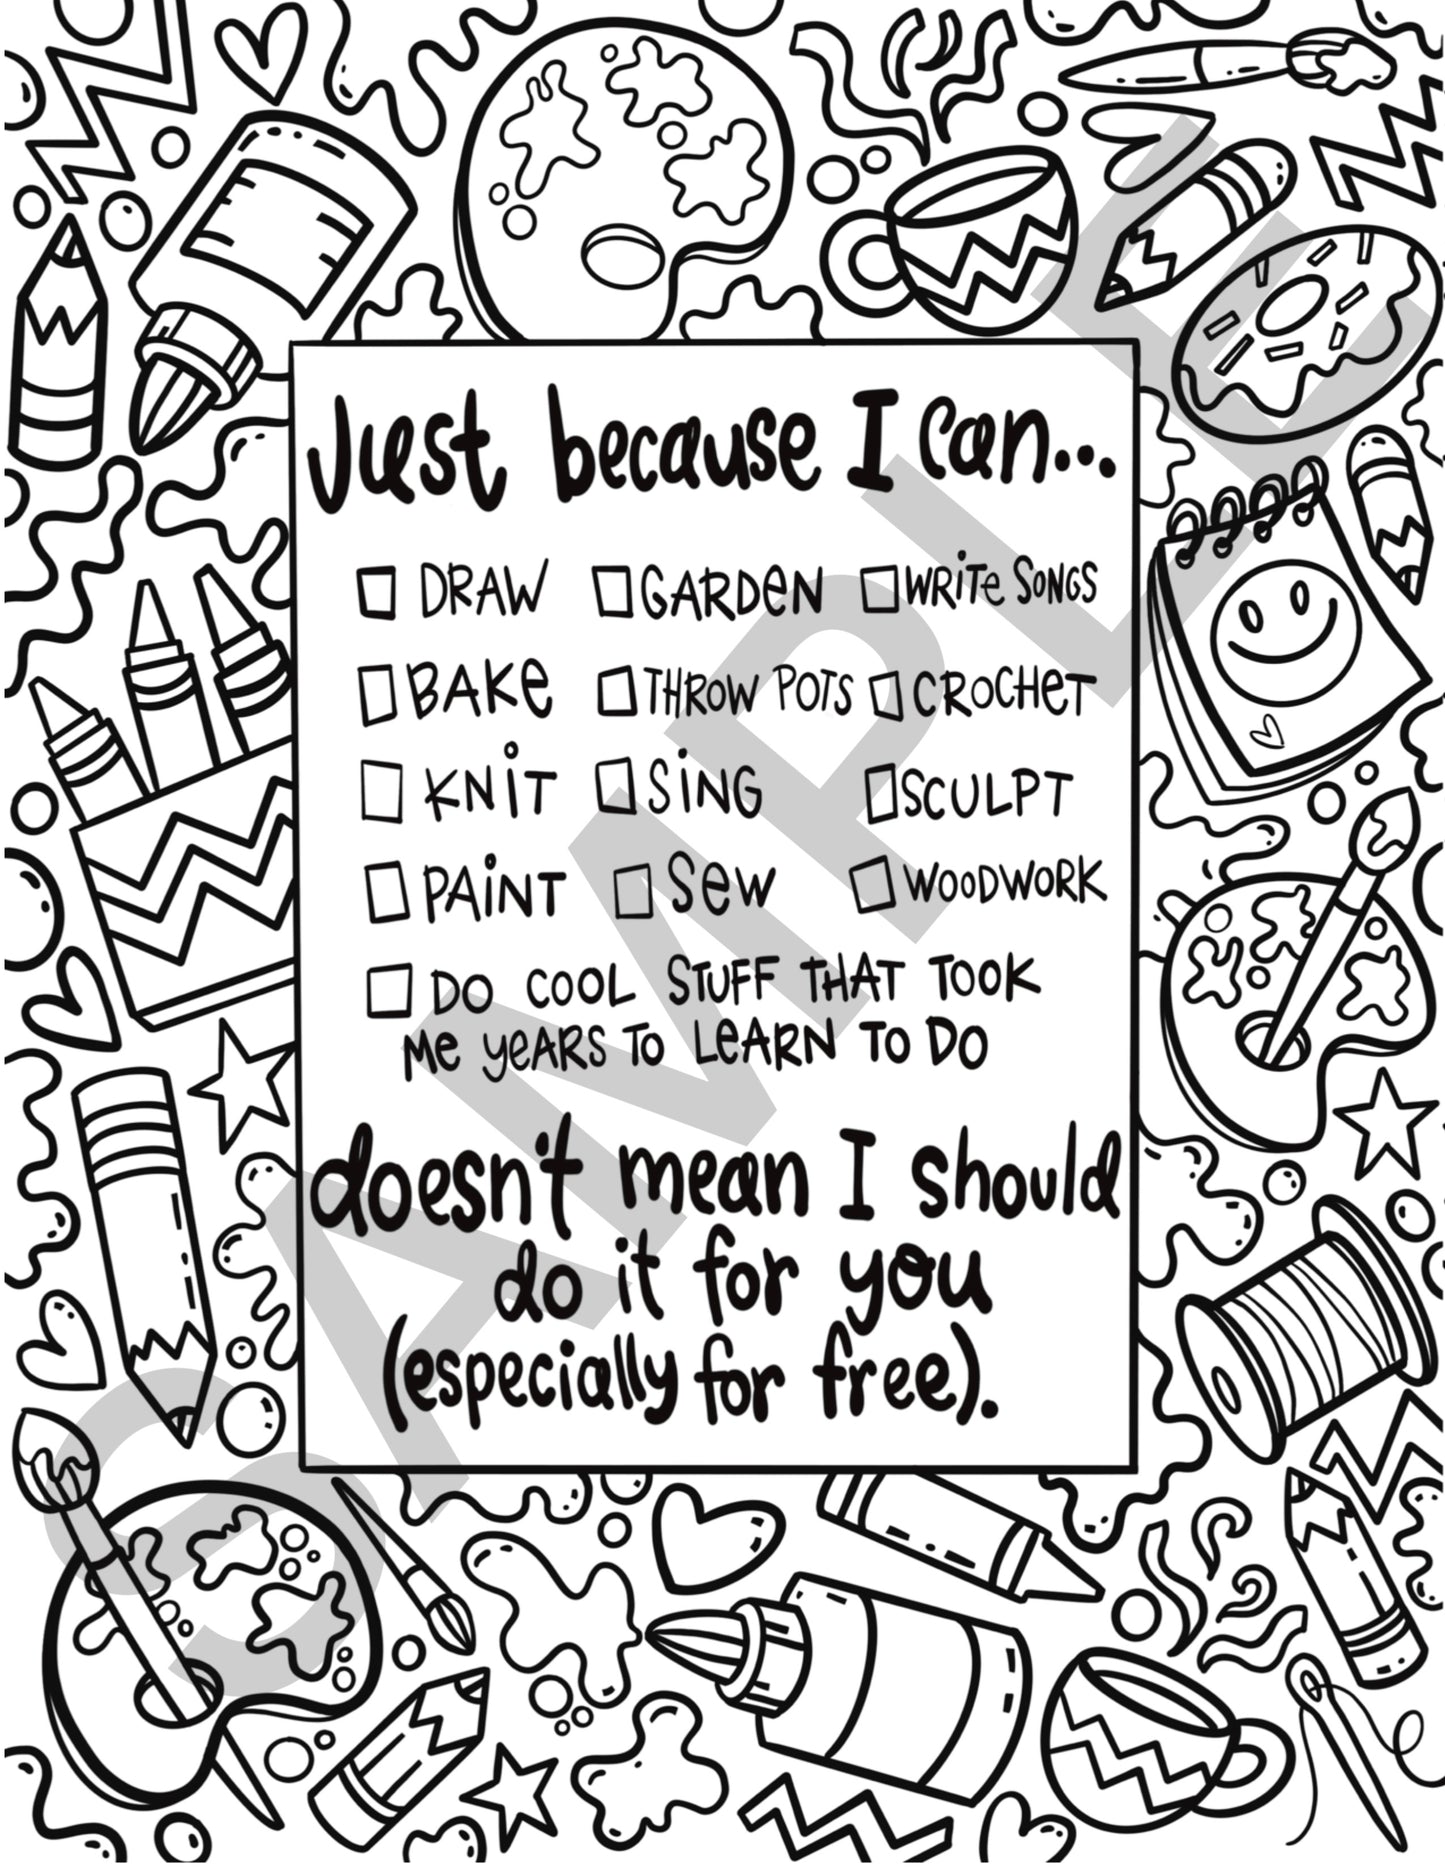 Just because I can...
DRAW GARDeN WRiTe SONGS
BAKe THROW POTS CROCHeT
KNiT SiNG SCULPT
PAiNT SeW WOODWORK
DO COOL STUFF THAT TOOK
Me YeARS TO LeARN TO DO
doesn't mean I should
do it for you
(especially for free).
SAMPLE